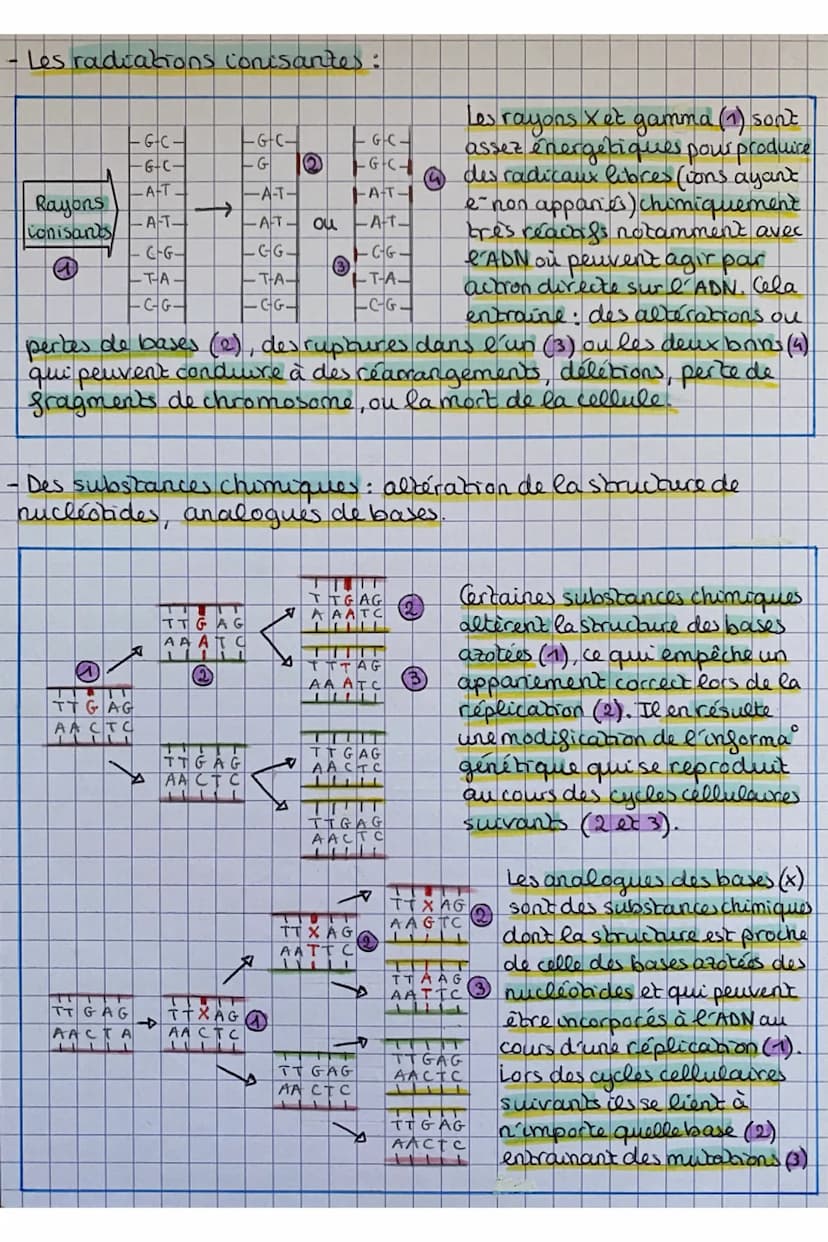 - Les radiations ionisantes :
Rayons
ionisants
1
G-C
G-C
A-T
A-T
C-G
T-A
C-G
G-C
G
2
A-T
A-T
C-G
T-A
C-G
ou
G-C
G-C
A-T
A-T
C-G
T-A
C-G
3
4
Les rayons X et gamma (1) sont
assez énergétiques pour produire
des radicaux libres (ions ayant
e- non appariés) chimiquement
très réactifs notamment avec
l'ADN où peuvent agir par
action directe sur l'ADN. Cela
entraîne : des altérations ou
pertes de bases (2), des ruptures dans l'un (3) ou les deux brins (4)
qui peuvent conduire à des réarrangements, délétions, perte de
fragments de chromosome, ou la mort de la cellule.
- Des substances chimiques : altération de la structure de
nucléotides, analogues de bases.
1
TTGAG
AACTC
TTGAG
AAATC
2
TTGAG
AACTC
TTGAG
AAATC
2
TTTAG
AAATC
3
TTGAG
AACTC
TTGAG
AACTC
Certaines substances chimiques
altèrent la structure des bases
azotées (1), ce qui empêche un
appariement correct lors de la
réplication (2). Il en résulte
une modification de l'informa°
génétique qui se reproduit
au cours des cycles cellulaires
suivants (2 et 3).
TTGAG
AACTA
TTXAG
AACTC
1
TTXAG
AATTC
2
TTGAG
AACTC
TTXAG
AAGTC
2
TTAAG
AATTC
3
TTGAG
AACTC
TTGAG
AACTC
Les analogues des bases (x)
sont des substances chimiques
dont la structure est proche
de celle des bases azotées des
nucléotides et qui peuvent
être incorporés à l'ADN au
cours d'une réplication (1).
Lors des cycles cellulaires
suivants ils se lient à
n'importe quelle base (2)
entrainant des mutations (3)